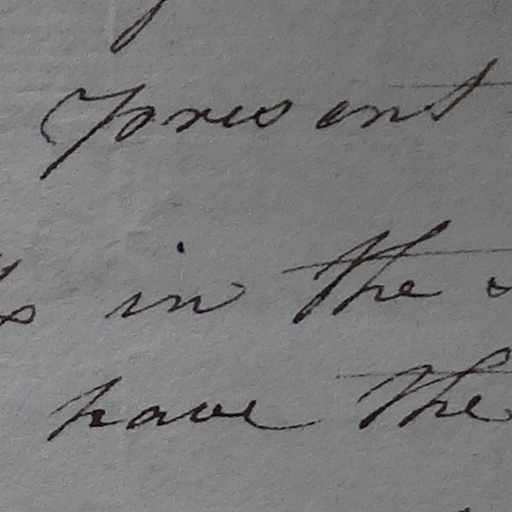 present
in the
have the